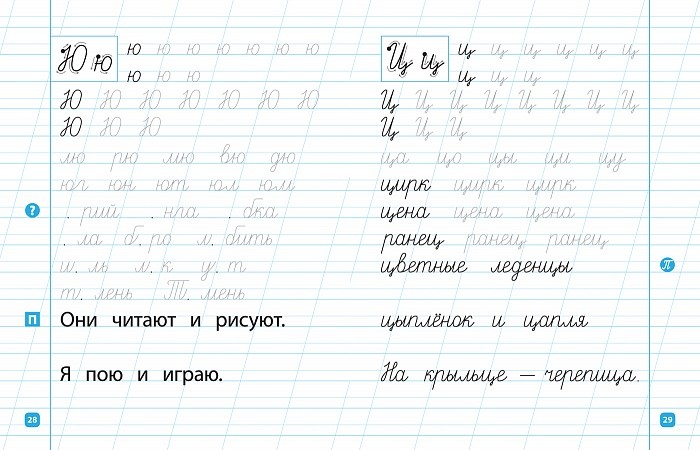 Ю ю ю ю ю ю ю ю ю
ю ю ю
Ю Ю Ю Ю Ю Ю Ю
Ю Ю Ю
лю рю мю вю дю
юг юн ют юл юм
? . рий . нга . бка
. ла б. ро л. бить
ш. ль л. к у. т
т. лень Т. мень
П Они читают и рисуют.
Я пою и играю.
28
Ц ц ц ц ц ц ц ц ц
ц ц ц
Ц Ц Ц Ц Ц Ц Ц Ц
Ц Ц Ц
ца цо цы ци цу
цирк цирк цирк
цена цена цена
ранец ранец ранец
цветные леденцы П
цыплёнок и цапля
На крыльце — черепица.
29